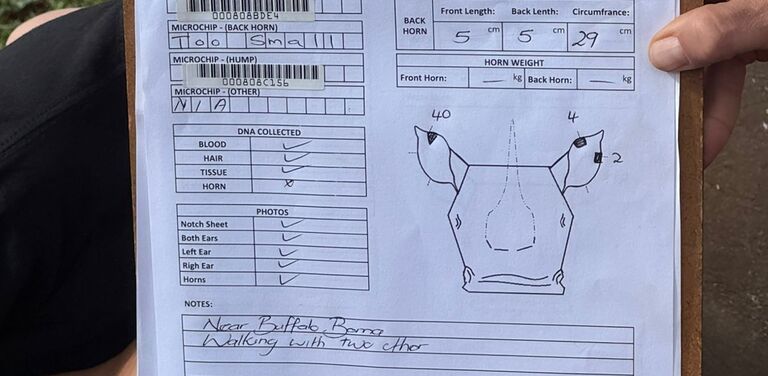 000808BDE4
MICROCHIP - (BACK HORN)
Too Small
MICROCHIP - (HUMP)
000808C156
MICROCHIP - (OTHER)
N/A
DNA COLLECTED
BLOOD ✓
HAIR ✓
TISSUE ✓
HORN x
PHOTOS
Notch Sheet ✓
Both Ears ✓
Left Ear ✓
Righ Ear ✓
Horns ✓
BACK HORN
Front Length: Back Lenth: Circumfrance:
5 cm 5 cm 29 cm
HORN WEIGHT
Front Horn: — kg Back Horn: — kg
40 4
2
NOTES:
Near Buffalo Boma
Walking with two other